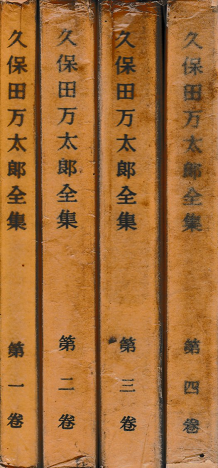 久保田万太郎全集 第一卷
久保田万太郎全集 第二卷
久保田万太郎全集 第三卷
久保田万太郎全集 第四卷